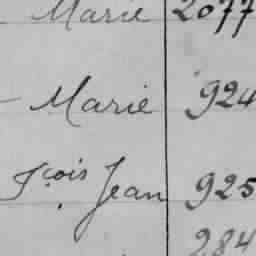 Marie 2077
Marie 924
Fçois Jean 925
284